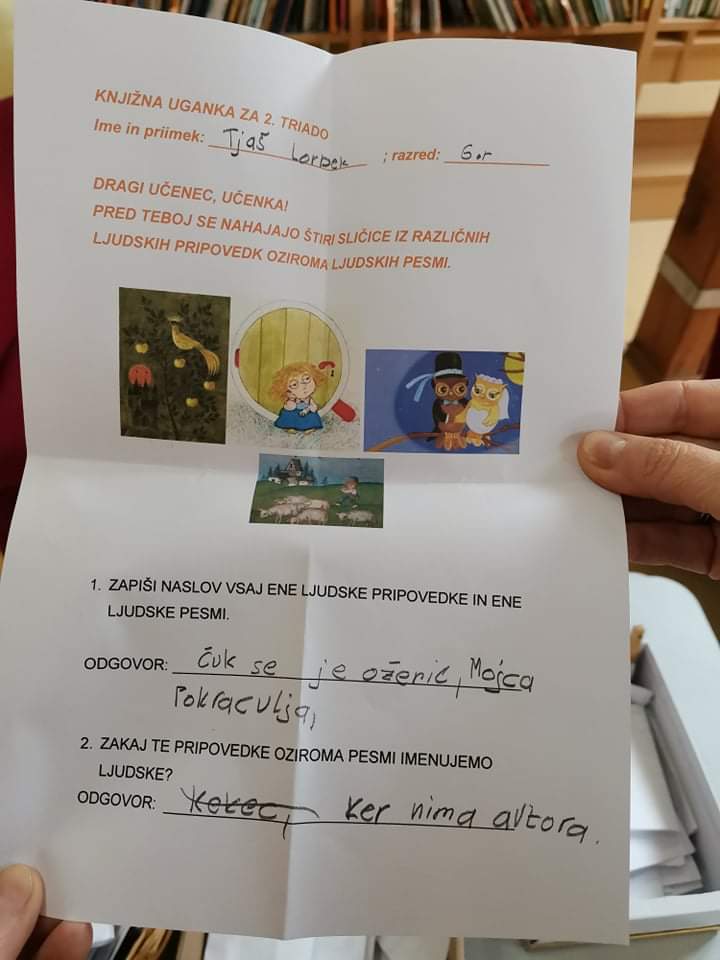 KNJIŽNA UGANKA ZA 2. TRIADO
Ime in priimek: Tjaš Lorbek ; razred: 6.r
DRAGI UČENEC, UČENKA!
PRED TEBOJ SE NAHAJAJO ŠTIRI SLIČICE IZ RAZLIČNIH
LJUDSKIH PRIPOVEDK OZIROMA LJUDSKIH PESMI.
1. ZAPIŠI NASLOV VSAJ ENE LJUDSKE PRIPOVEDKE IN ENE
LJUDSKE PESMI.
ODGOVOR: Čuk se je oženil, Mojca
Pokraculja,
2. ZAKAJ TE PRIPOVEDKE OZIROMA PESMI IMENUJEMO
LJUDSKE?
ODGOVOR: Kekec, ker nima avtora.